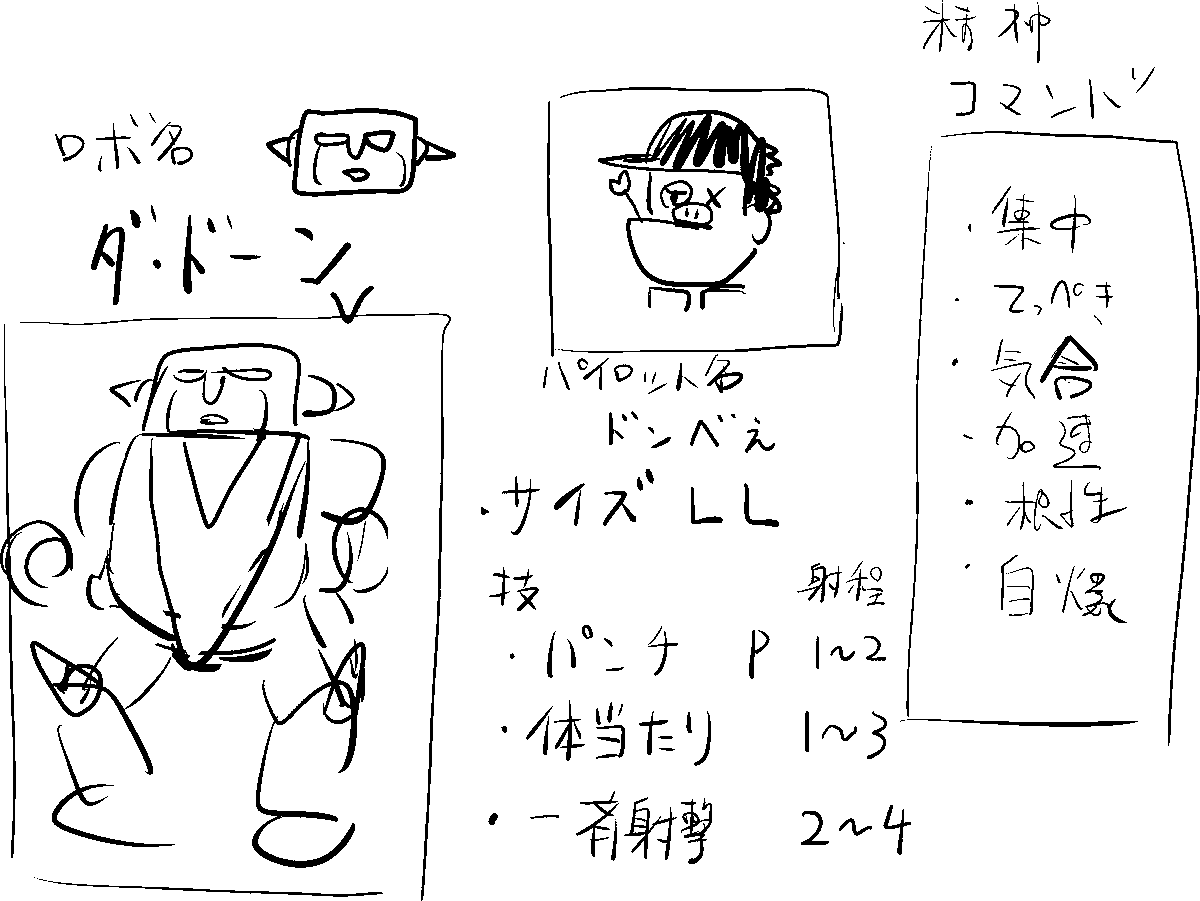 ロボ名
ダ・ドーン
パイロット名
ドンべぇ
・サイズ LL
技 射程
・パンチ P 1~2
・体当たり 1~3
・一斉射撃 2~4
精神
コマンド
・集中
・てっぺき
・気合
・加速
・根性
・自爆